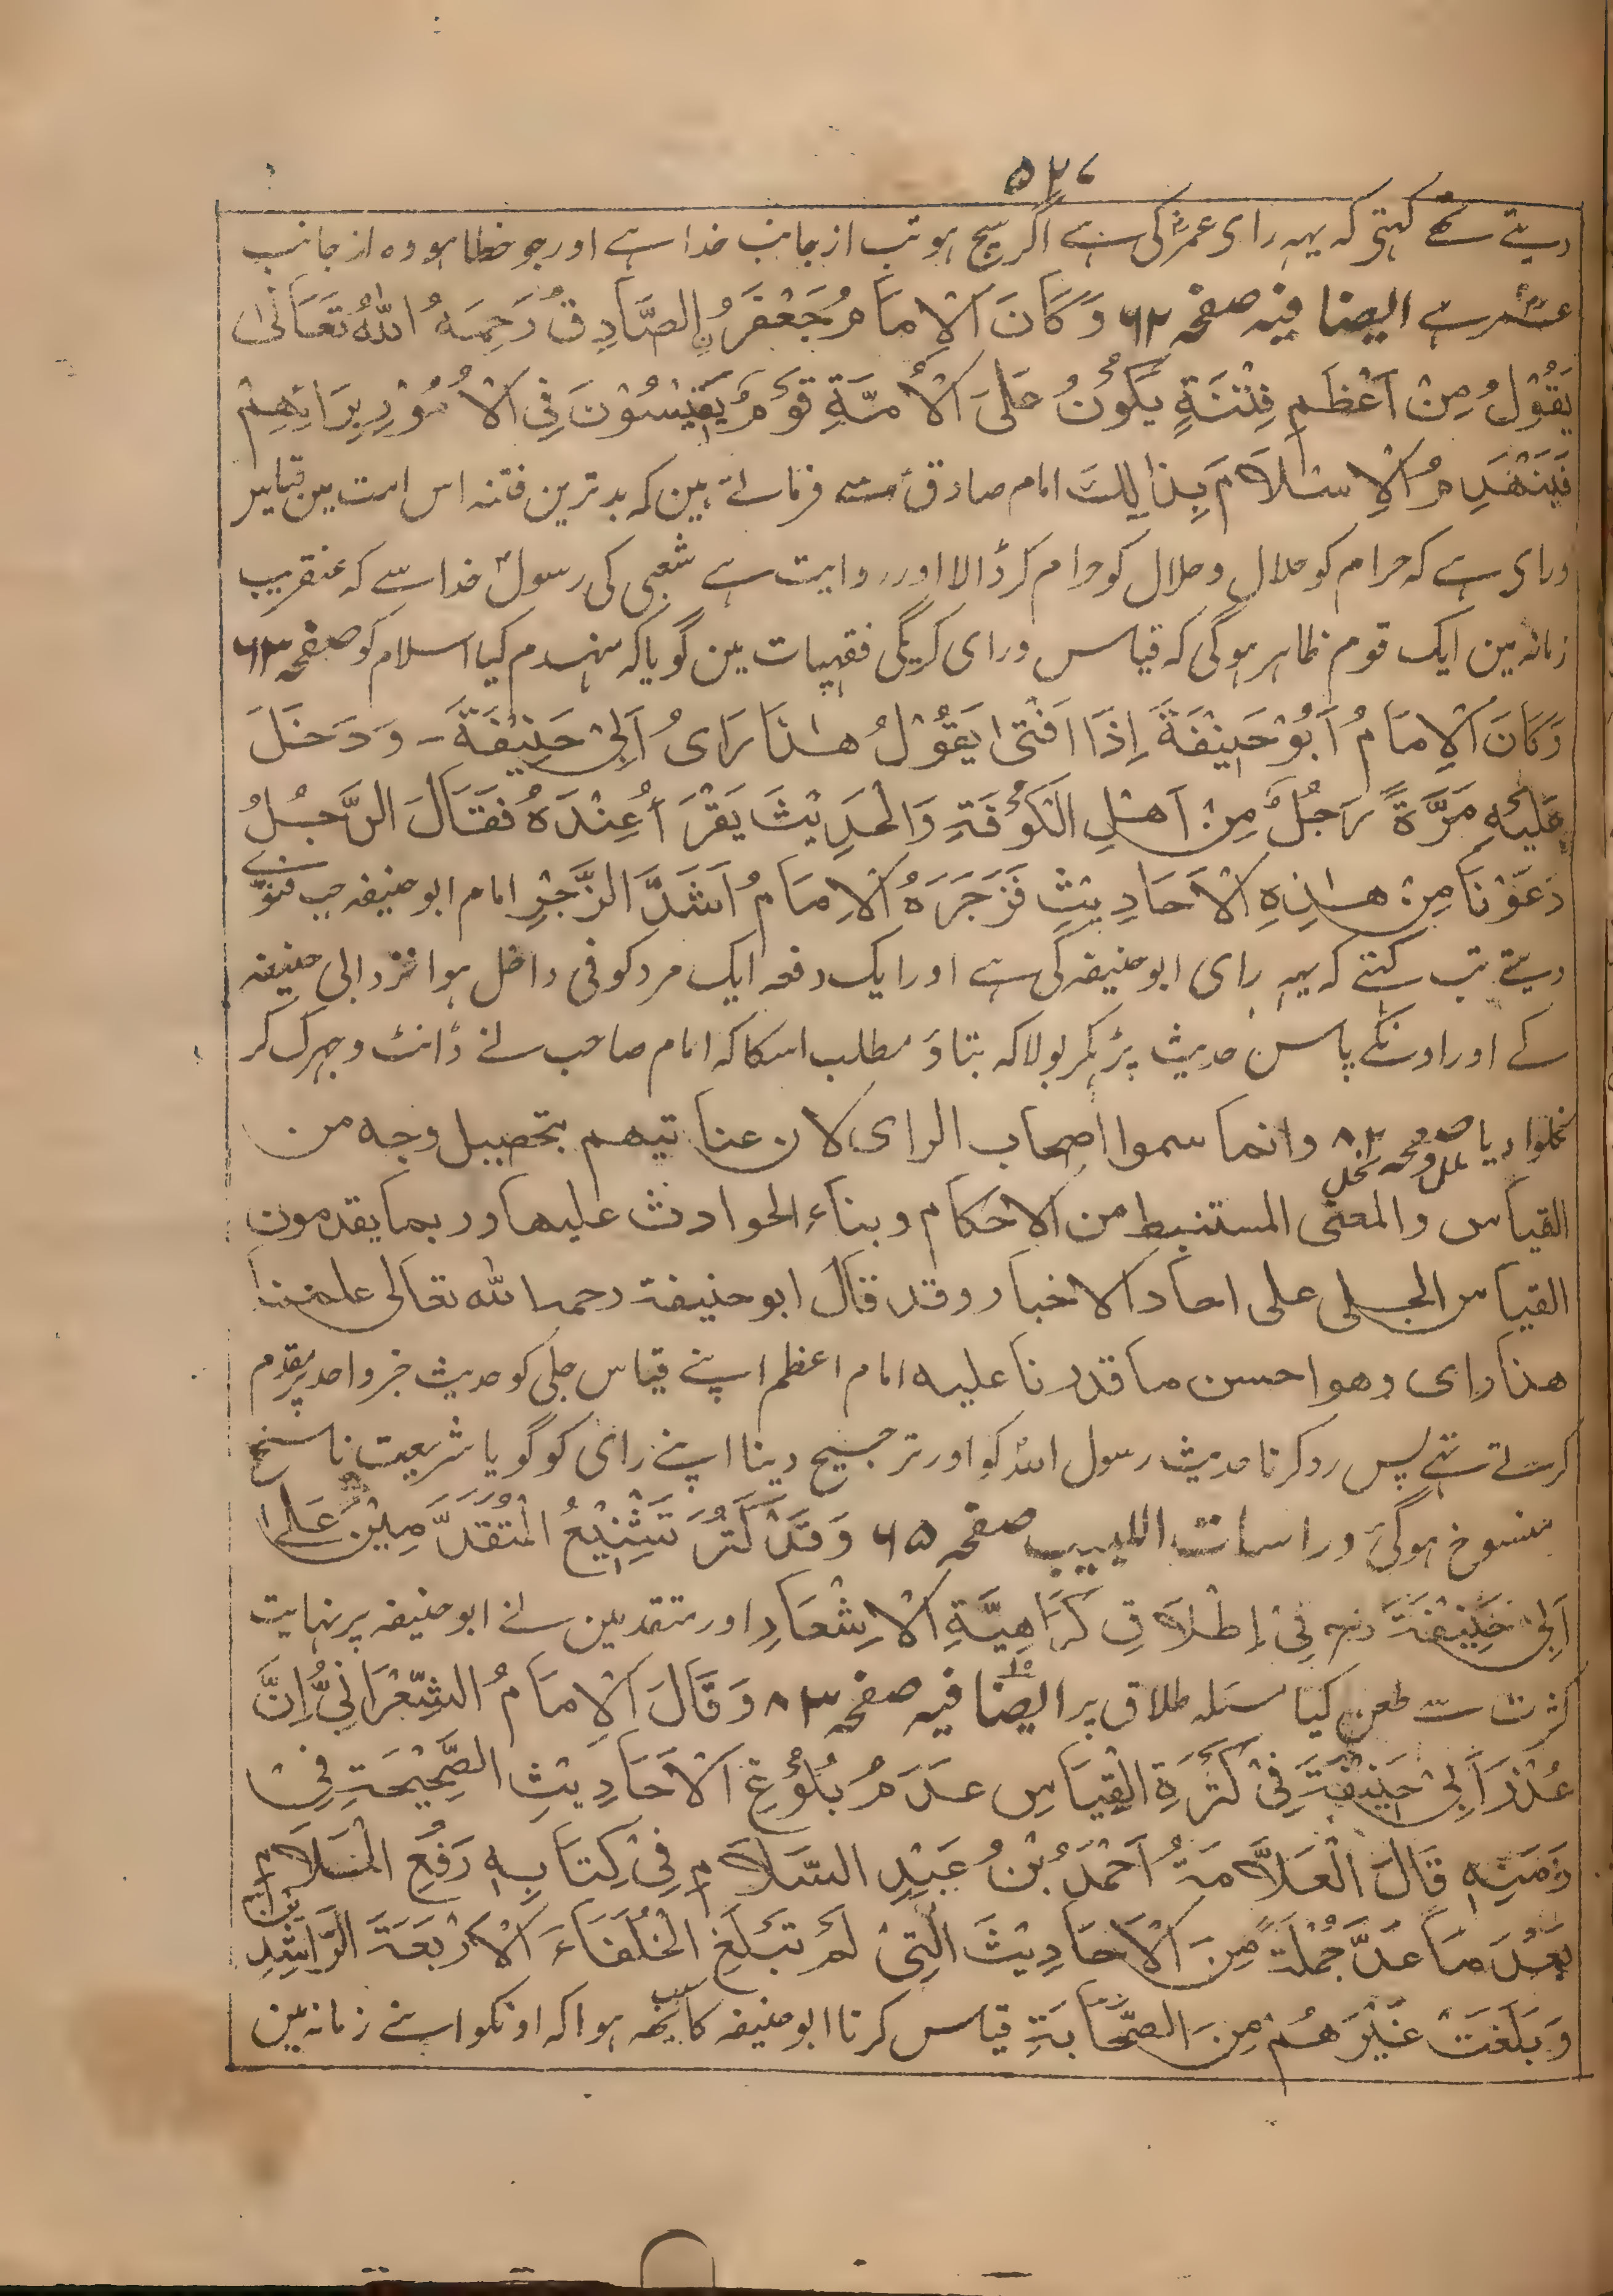 ۵۲۷
دیتے تھے کہتی کہ یہہ رای عمرؓ کی ہے اگر صحیح ہو تب از جانب خدا ہے اور جو خطا ہو وہ از جانب
عمرؓ ہے ایضا فیہ صفحہ ۶۲ وَكَانَ الْاِمَامُ جَعْفَرُ نِ الصَّادِقُ رَحِمَهُ اللهُ تَعَالٰى
يَقُوْلُ مِنْ اَعْظَمِ فِتْنَةٍ يَكُوْنُ عَلَى الْاُمَّةِ قَوْمٌ يَقِيْسُوْنَ فِى الْاُمُوْرِ بِرَائِهِمْ
فَيَنْهَدِمُ الْاِسْلَامُ بِذَالِكَ امام صادق فرماتے ہین کہ بدترین فتنہ اس امت مین قیاس
ورای ہے کہ حرام کو حلال و حلال کو حرام کر ڈالا اور روایت ہے شعبی کی رسول خدا سے کہ عنقریب
زمانہ مین ایک قوم ظاہر ہوگی کہ قیاس ورای کریگی فقہیات مین گویا کہ منہدم کیا اسلام کو صفحہ ۶۳
وَكَانَ الْاِمَامُ اَبُوْ حَنِيْفَةَ اِذَا اَفْتٰى يَقُوْلُ هٰذَا رَاىُ اَبِىْ حَنِيْفَةَ - وَدَخَلَ
عَلَيْهِ مَرَّةً رَجُلٌ مِنْ اَهْلِ الْكُوْفَةِ وَالْحَدِيْثُ يَقْرَأُ عِنْدَهُ فَقَالَ الرَّجُلُ
دَعَوْنَا مِنْ هٰذِهِ الْاَحَادِيْثِ فَزَجَرَهُ الْاِمَامُ اَشَدَّ الزَّجْرِ امام ابو حنیفہ جب فتوے
دیتے تب کہتے کہ یہہ رای ابو حنیفہ کی ہے اور ایک دفعہ ایک مرد کوفی داخل ہوا نزد ابی حنیفہ
کے اور اونکے پاس حدیث پڑہکر بولا کہ بتاؤ مطلب اسکا کہ امام صاحب نے ڈانٹ و جہرک کر
نکلوا دیا صفحہ ۸۲ ملل و نحل وانما سموا اصحاب الرای لان عنايتهم بتحصيل وجه من
القیاس والمعنى المستنبط من الاحكام وبناء الحوادث عليها وربما يقدمون
القیاس الجلی علی احاد الاخبار وقد قال ابو حنيفة رحمه الله تعالى علمنا
هذا رای وهو احسن ما قدرنا عليه امام اعظم اپنے قیاس جلی کو حدیث خبر واحد پر مقدم
کرتے تہے پس رد کرنا حدیث رسول اللہ کو اور ترجیح دینا اپنے رای کو گویا شریعت ناسخ
منسوخ ہوگئ دراسات اللبیب صفحہ ۶۵ وَقَدْ كَثُرَ تَشْنِيْعُ الْمُتَقَدِّمِيْنَ عَلٰى
اَبِىْ حَنِيْفَةَ فِىْ اِطْلَاقِ كَرَاهِيَّةِ الْاِشْعَارِ اور متقدمین نے ابو حنیفہ پر نہایت
کثرت سے طعن کیا مسئلہ طلاق پر ایضا فیہ صفحہ ۸۳ وَقَالَ الْاِمَامُ الشِّعْرَانِىُّ اِنَّ
عُذْرَ اَبِىْ حَنِيْفَةَ فِىْ كَثْرَةِ الْقِيَاسِ عَدَمُ بُلُوْغِ الْاَحَادِيْثِ الصَّحِيْحَةِ فِىْ
زَمَنِهٖ قَالَ الْعَلَّامَةُ اَحْمَدُ بْنُ عَبْدِ السَّلَامِ فِىْ كِتَابِهٖ رَفْعِ الْمَلَامِ
بَعْدَ مَا عَدَّ جُمْلَةً مِنَ الْاَحَادِيْثِ الَّتِىْ لَمْ تَبْلَغِ الْخُلَفَاءَ الْاَرْبَعَةَ الرَّاشِدِيْنَ
وَبَلَغَتْ غَيْرَهُمْ مِنَ الصَّحَابَةِ قیاس کرنا ابو حنیفہ کا سبب یہہ ہوا کہ اونکو اپنے زمانہ مین